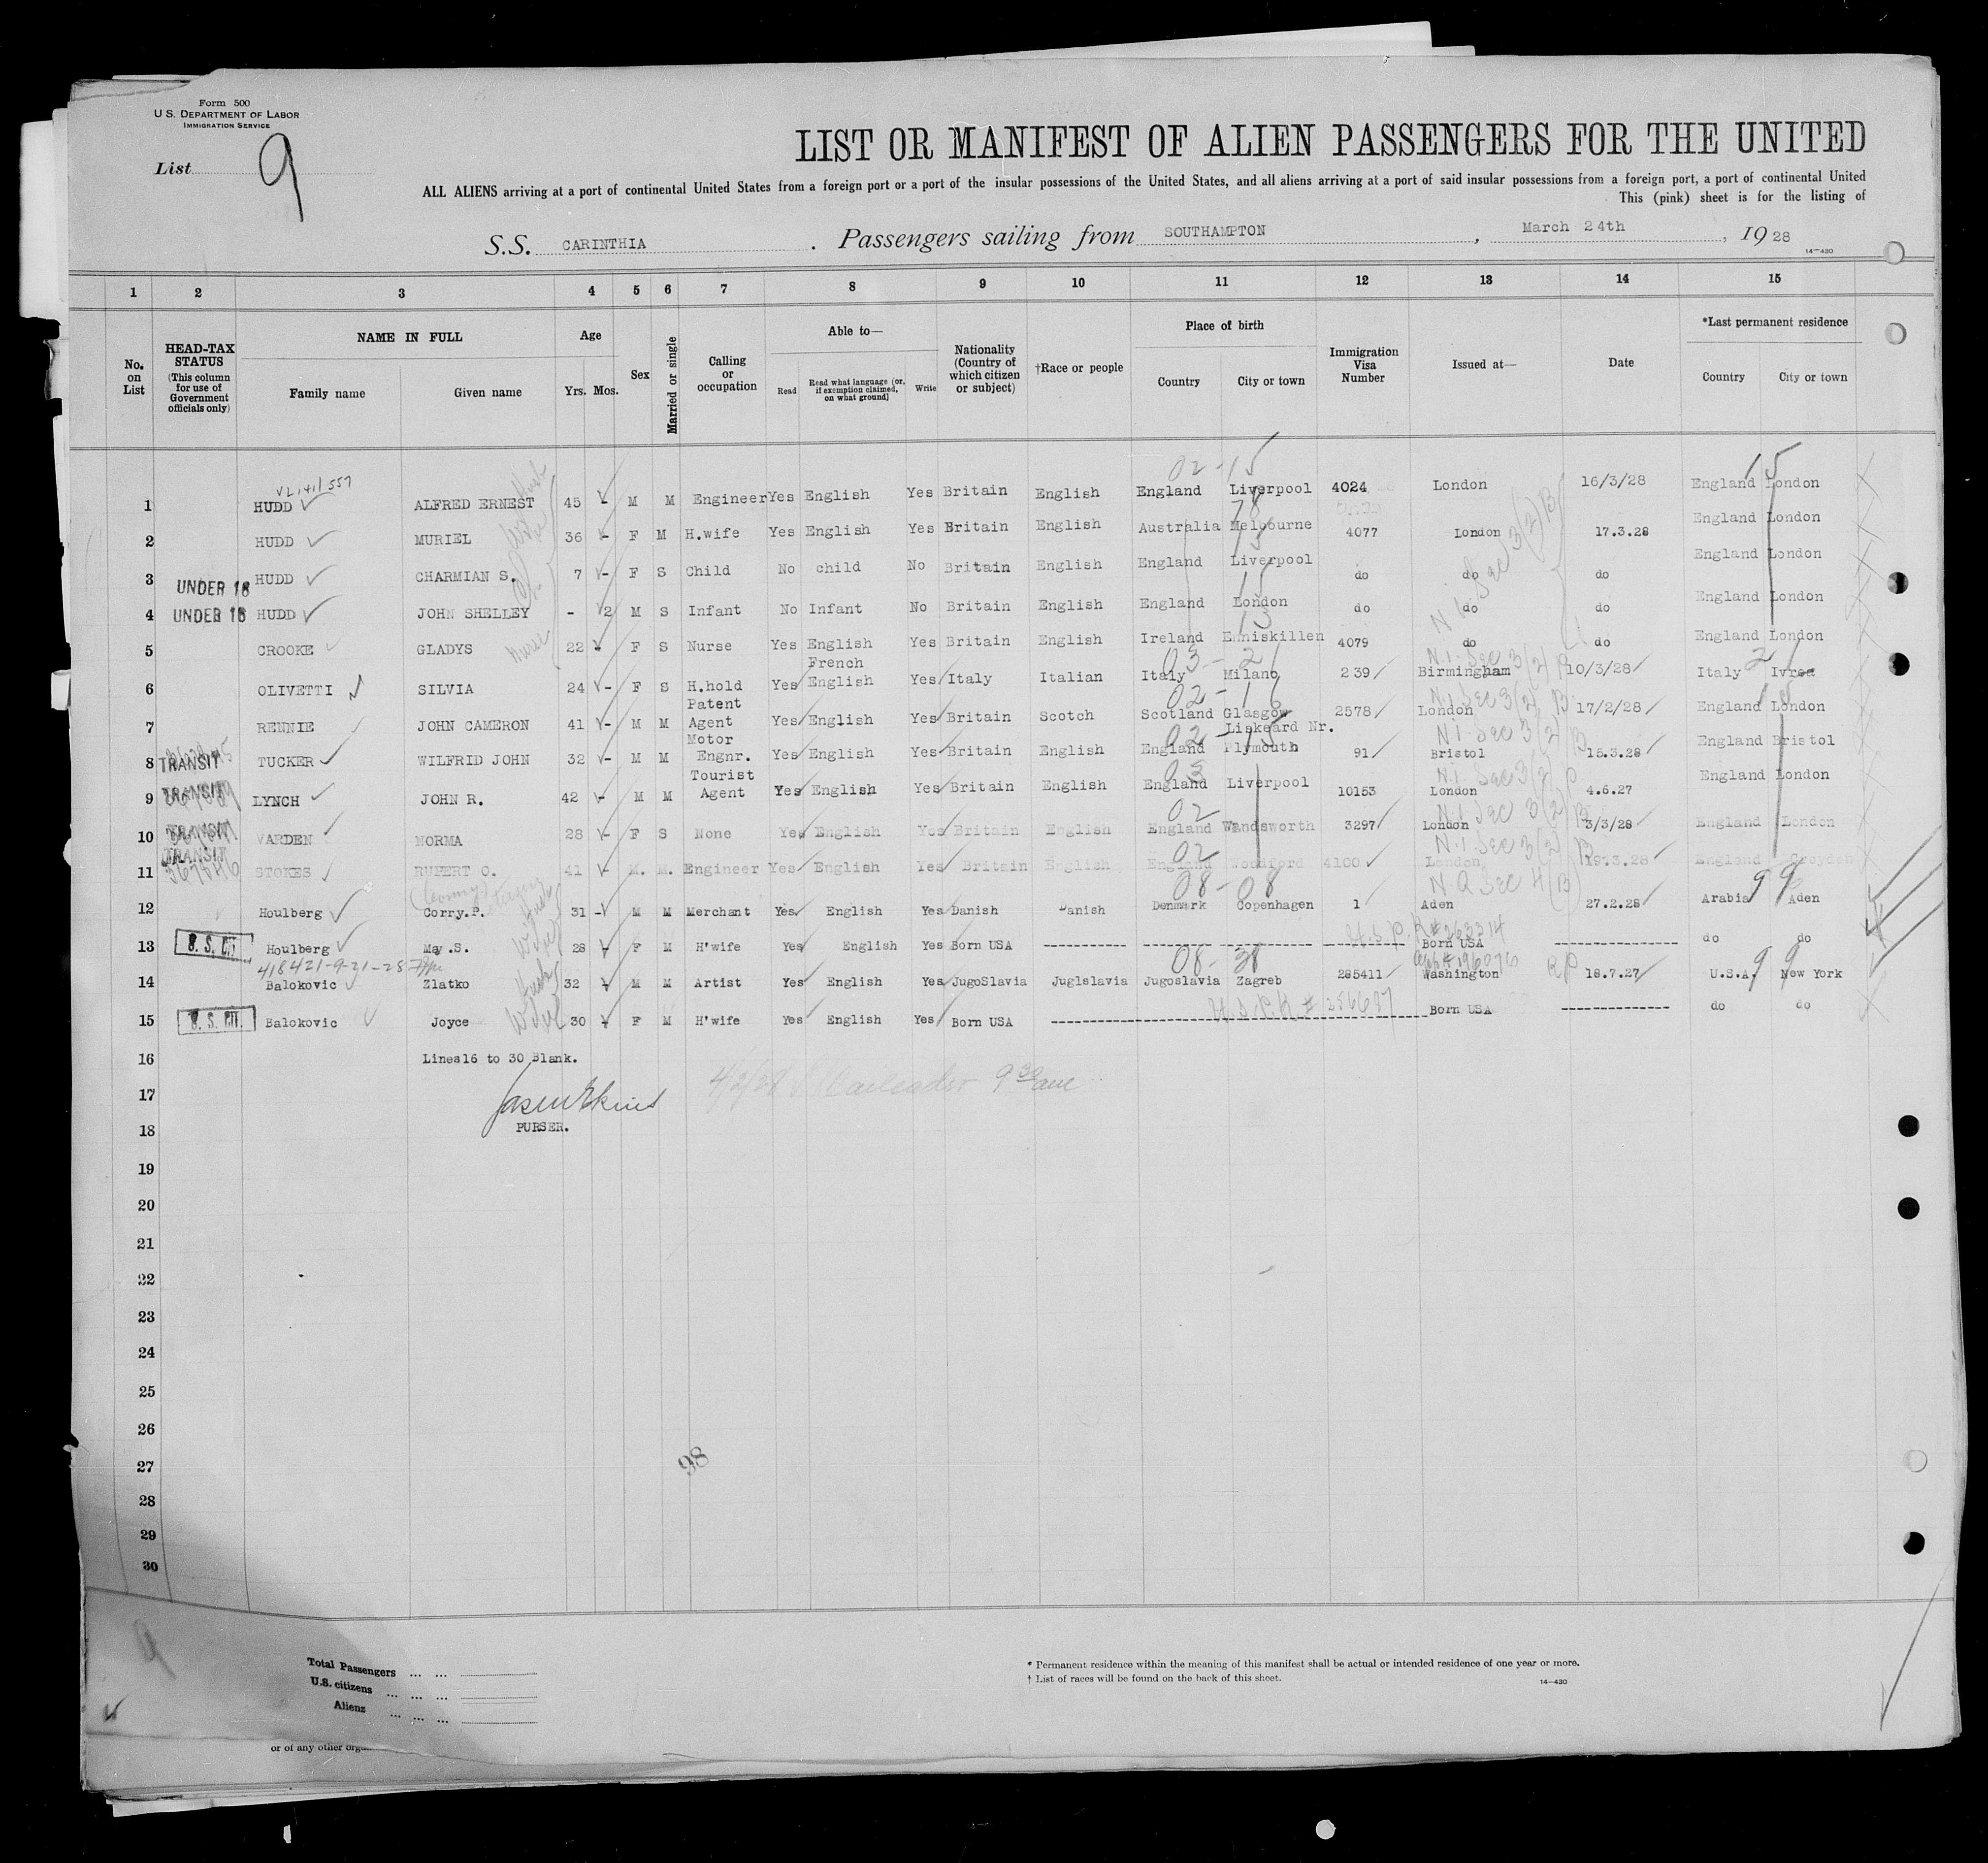 Form 500
U.S. DEPARTMENT OF LABOR
IMMIGRATION SERVICE
List 9
LIST OR MANIFEST OF ALIEN PASSENGERS FOR THE UNITED
ALL ALIENS arriving at a port of continental United States from a foreign port or a port of the insular possessions of the United States, and all aliens arriving at a port of said insular possessions from a foreign port, a port of continental United
This (pink) sheet is for the listing of
S.S. CARINTHIA . Passengers sailing from SOUTHAMPTON , March 24th , 1928
14—430
1 2 3 4 5 6 7 8 9 10 11 12 13 14 15
No. on List
HEAD-TAX STATUS (This column for use of Government officials only)
NAME IN FULL Family name Given name
Age Yrs. Mos.
Sex
Married or single
Calling or occupation
Able to— Read Read what language (or, if exemption claimed, on what ground) Write
Nationality (Country of which citizen or subject)
†Race or people
Place of birth Country City or town
Immigration Visa Number
Issued at—
Date
*Last permanent residence Country City or town
02-15 15
1 HUDD ALFRED ERNEST 45 - M M Engineer Yes English Yes Britain English England Liverpool 4024 London 16/3/28 England London
2 HUDD MURIEL 36 - F M H.wife Yes English Yes Britain English Australia Melbourne 4077 London 17.3.28 England London
3 UNDER 16 HUDD CHARMIAN S. 7 - F S Child No child No Britain English England Liverpool do do do England London
4 UNDER 16 HUDD JOHN SHELLEY - 2 M S Infant No Infant No Britain English England London do do do England London
5 CROOKE GLADYS 22 - F S Nurse Yes English Yes Britain English Ireland Enniskillen 4079 do do England London
6 OLIVETTI SILVIA 24 - F S H.hold Yes French English Yes Italy Italian Italy Milano 239 Birmingham 10/3/28 Italy Ivrea
7 RENNIE JOHN CAMERON 41 - M M Patent Agent Yes English Yes Britain Scotch Scotland Glasgow 2578 London 17/2/28 England London
8 TRANSIT TUCKER WILFRID JOHN 32 - M M Motor Engnr. Yes English Yes Britain English England Liskeard Nr. Plymouth 91 Bristol 15.3.28 England Bristol
9 TRANSIT LYNCH JOHN R. 42 - M M Tourist Agent Yes English Yes Britain English England Liverpool 10153 London 4.6.27 England London
10 TRANSIT VARDEN NORMA 28 - F S None Yes English Yes Britain English England Wandsworth 3297 London 3/3/28 England London
11 TRANSIT STOKES RUPERT O. 41 - M. M. Engineer Yes English Yes Britain English England Woodford 4100 London 19.3.28 England Croydon
12 Houlberg Corry.P. 31 - M M Merchant Yes English Yes Danish Danish Denmark Copenhagen 1 Aden 27.2.28 Arabia Aden
13 U.S. CIT. Houlberg May.S. 28 - F M H'wife Yes English Yes Born USA Born USA do do
14 Balokovic Zlatko 32 - M M Artist Yes English Yes JugoSlavia Juglslavia Jugoslavia Zagreb 285411 Washington 18.7.27 U.S.A. New York
15 U.S. CIT. Balokovic Joyce 30 - F M H'wife Yes English Yes Born USA Born USA do do
16 Lines16 to 30 Blank.
17
18 PURSER.
19
20
21
22
23
24
25
26
27 98
28
29
30
Total Passengers
U.S. citizens
Aliens
* Permanent residence within the meaning of this manifest shall be actual or intended residence of one year or more.
† List of races will be found on the back of this sheet.
14—430
or of any other